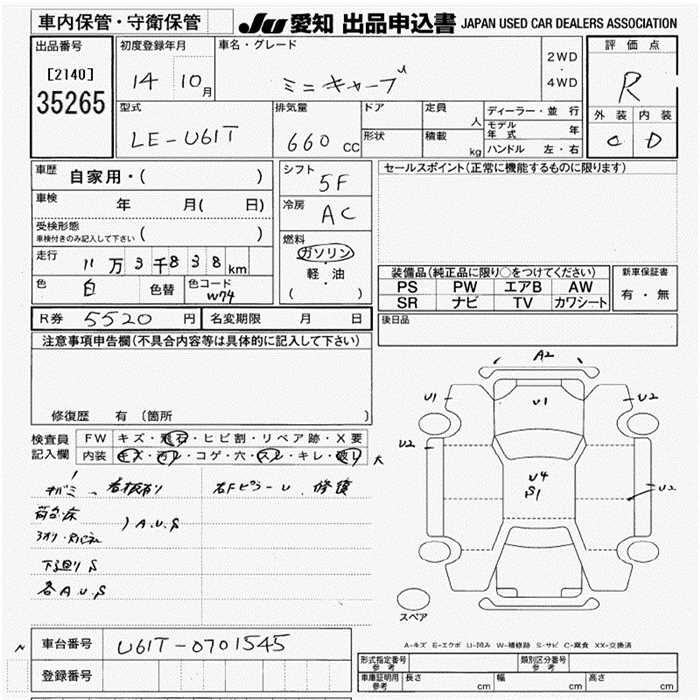 車内保管・守衛保管
JU 愛知 出品申込書 JAPAN USED CAR DEALERS ASSOCIATION
出品番号
[2140]
35265
初度登録年月
14 10月
車名・グレード
ミニキャーブ
2WD
・
4WD
評価点
R
外装 内装
C D
型式
LE-U61T
排気量
660 cc
ドア
形状
定員 人
積載 kg
ディーラー・並行
モデル年式 年
ハンドル 左・右
車歴 自家用・( )
車検 年 月( 日)
受検形態
車検付きのみ記入して下さい ( )
走行 11万3千838km
色 白 色替 色コード W74
シフト
5F
冷房
AC
燃料
ガソリン
・
軽・油
( )
セールスポイント(正常に機能するものに限ります)
装備品(純正品に限り○をつけてください)
PS PW エアB AW
SR ナビ TV カワシート
新車保証書
有・無
R券 5520円 名変期限 月 日
後日品
注意事項申告欄(不具合内容等は具体的に記入して下さい)
修復歴 有〔箇所 〕
検査員記入欄
FW キズ・飛石・ヒビ割・リペア跡・X要
内装 キズ・汚レ・コゲ・穴・スレ・キレ・破レ 大
キバミ、看板有り 右Fピラー U 修復
荷台床
) A.U.S
下廻り S
各 A.U.S
A2
U1
U1
U2
U2
U4
S1
U2
スペア
A-キズ E-エクボ U-凹み W-補修跡 S-サビ C-腐食 XX-交換済
車台番号 U61T-0701545
登録番号
型式指定番号 参考
類別区分番号 参考
車庫証明用 参考 長さ cm 幅 cm 高さ cm